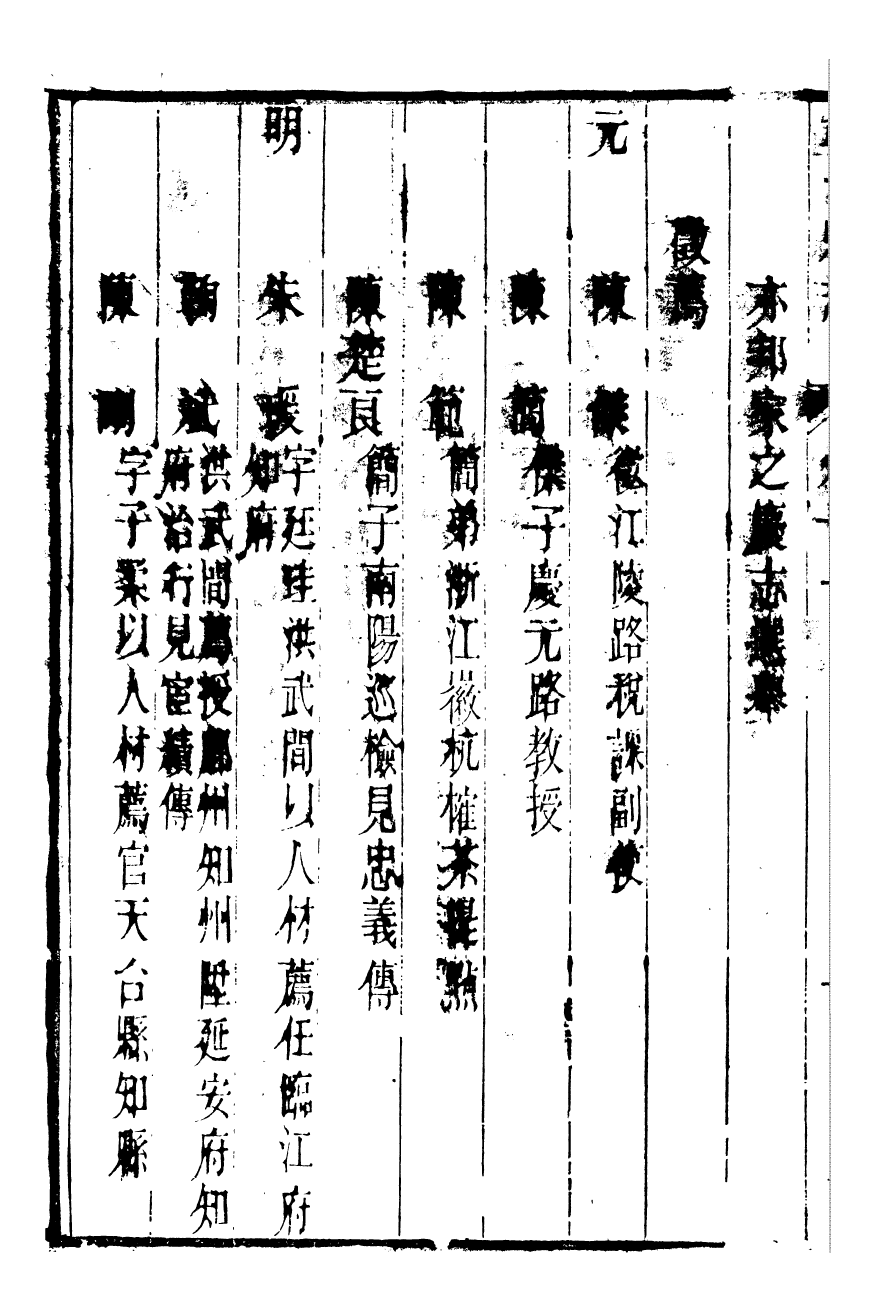 亦邦家之慶志選舉
徵薦
元 陳傑 徵江陵路稅課副使
陳簡 傑子慶元路教授
陳範 簡弟浙江徽杭榷茶提點
陳楚良 簡子南陽巡檢見忠義傳
明 朱瑗 字廷珪洪武間以人材薦任臨江府
知府
斌 洪武間薦授州知州陞延安府知
府治行見宦績傳
陳剛 字子柔以人材薦官天台縣知縣